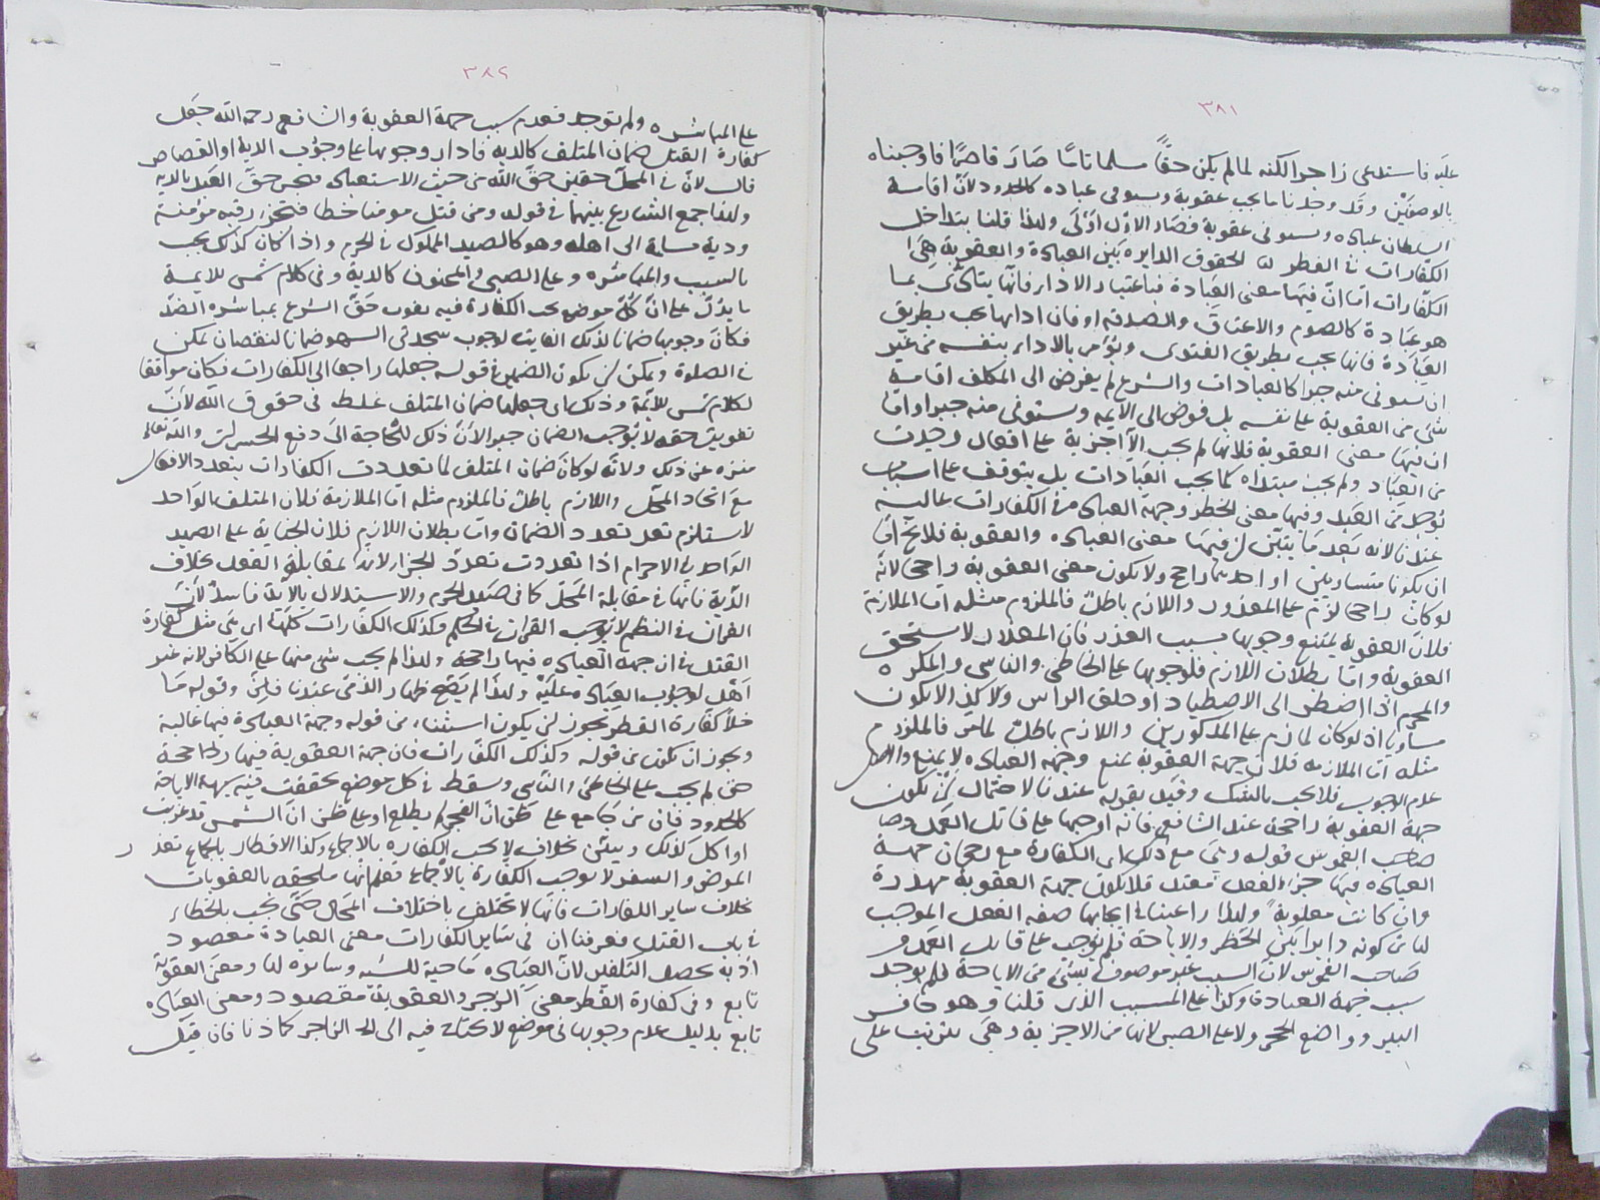 ٣٨١
عليه فاستدعى زاجرا لكنه لما لم يكن حقا مسلما تاما صار قاصرا فاوجبناه
بالوصفين وقد وجدنا ما يجب عقوبة ويستوفى عباده كالحدود لان اقامة
السلطان عبادة ويستوفى عقوبة فصار الاول اولى ولهذا قلنا بتداخل
الكفارات في الفطر لنا الحقوق الدايرة بين العبادة والعقوبة هى
الكفارات اما ان فيها معنى العبادة فباعتبار الاداء فانها يتادى بما
هو عبادة كالصوم والاعتاق والصدقة او فان ادايها يجب بطريق
العبادة فانها يجب بطريق الفتوى ويؤمر بالاداء بنفسه من غير
ان يستوفى منه جبرا كالعبادات والشرع لم يفوض الى المكلف اقامة
شئ من العقوبة على نفسه بل فوض الى الايمة ويستوفى منه جبرا واما
ان فيها معنى العقوبة فلانها لم يجب الا اجزية على افعال وجدت
من العباد ولم يجب مبتداة كما يجب العبادات بل يتوقف على اسباب
توجد من العبد وفيها معنى الحظر وجهة العبادة في الكفارات غالبة
عندنا لانه بعد ما يتبين ان فيها معنى العبادة والعقوبة فلا يخ اما
ان يكونا متساويين او احدهما راجح ولا يكون معنى العقوبة راجحا لانه
لو كان راجحا لزم على المعذور واللازم باطل فالملزوم مثله اما الملازمة
فلان العقوبة يمتنع وجوبها بسبب العذر فان المعذور لا يستحق
العقوبة واما بطلان اللازم فلوجوبها على الخاطئ والناسى والمكره
والمحرم اذا اضطر الى الاصطياد او حلق الراس ولا كذا لا يكون
مساويا اذ لو كان لما لزم على المذكورين واللازم باطل لما مر فالملزوم
مثله اما الملازمة فلان جهة العقوبة تمنع وجهة العبادة لا يمنع والاصل
عدم الوجوب فلا يجب بالشك وقيد بقوله عندنا لاحتمال ان يكون
جهة العقوبة راجحة عند الشافعى فانه اوجبها على قاتل العمد وصا
صاحب الغموس قوله وهى مع ذلك اى الكفارة مع رجحان جهة
العبادة فيها جزاء الفعل معتد فلا يكون جهة العقوبة مهدرة
وان كانت مغلوبة ولهذا راعينا في ايجابها صفة الفعل الموجب
لنا من كونه دايرا بين الحظر والاباحة فلم نوجب على قاتل العمد و
صاحب الغموس لان السبب غير موصوف بشئ من الاباحة فلم يوجد
سبب جهة العبادة وكذا على المسبب الذى قلنا وهو حافر
البير وواضع الحجر ولا على الصبى لانها من الاجزية وهى يترتب على
٣٨٢
على المباشرة ولم توجد فعدم سبب جهة العقوبة والشافعى رحمه الله جعل
كفارة القتل ضمان المتلف كالدية فادار وجوبها على وجوب الدية او القصاص
قال لان في المحل حقين حق الله من حيث الاستعباد وحق العبد بالدية
ولهذا جمع الشارع بينهما في قوله ومن قتل مومنا خطا فتحرير رقبة مؤمنة
ودية مسلمة الى اهله وهو كالصيد المملوك في الحرم واذا كان كذلك يجب
بالسبب والمباشرة وعلى الصبى والمجنون كالدية وفى كلام شمس الايمة
ما يدل على ان كل موضع يجب الكفارة فيه يفوت حق الشرع بمباشرة الضد
فكان وجوبها ضمانا لذلك الفايت لوجوب سجدتى السهو ضمانا لنقصان تمكن
في الصلوة ويمكن ان يكون الضمير في قوله جعلها راجعا الى الكفارات فكان موافقا
لكلام شمس الايمة وذلك اى جعلها ضمان المتلف غلط في حقوق الله لان
تفويت حقه لا يوجب الضمان جبرا لان ذلك للحاجة الى دفع الخسران والله تعالى
منزه عن ذلك ولانه لو كان ضمان المتلف لما تعددت الكفارات بتعدد الافعال
مع اتحاد المحل واللازم باطل فالملزوم مثله اما الملازمة فلان المتلف الواحد
لا يستلزم تعدد الضمان واما بطلان اللازم فلان الجناية على الصيد
الواحد في الاحرام اذا تعددت تعدد الجزاء لانه بمقابلة الفعل بخلاف
الدية فانها في مقابلة المحل كما في صيد الحرم والاستدلال بالاية فاسد لان
القران في النظم لا يوجب القران في الحكم وكذلك الكفارات كلها اى هى مثل كفارة
القتل في ان جهة العبادة فيها راجحة ولهذا لم يجب شئ منها على الكافر لانه غير
اهل لوجوب العبادة عليه ولهذا لم يصح ظهار الذمى عندنا وقوله ما
خلا كفارة الفطر يجوز ان يكون استثناء من قوله وجهة العبادة فيها غالبة
ويجوز ان يكون من قوله وكذلك الكفارات فان جهة العقوبة فيها راجحة
حتى لم يجب على الخاطئ والناسى وسقط في كل موضع تحققت فيه شبهة الاباحة
كالحدود فان من جامع على ظن ان الفجر لم يطلع او على ظن ان الشمس قد غربت
او اكل كذلك وتبين بخلافه لا يجب الكفارة بالاجماع وكذا الافطار بالجماع بعذر
المرض والسفر لا يوجب الكفارة بالاجماع فعلم انها ملحقة بالعقوبات
بخلاف ساير الكفارات فانها لا تختلف باختلاف المحال حتى يجب بالخطاء
في باب القتل فعرفنا ان في ساير الكفارات معنى العبادة مقصود
اذ به يحصل التكفير لان العبادة ماحية للسيئة وساترة لها ومعنى العقوبة
تابع وفى كفارة الفطر معنى الزجر والعقوبة مقصود ومعنى العبادة
تابع بدليل عدم وجوبها في موضع لا يحتاج فيه الى الزاجر كما ذكرنا فان قيل